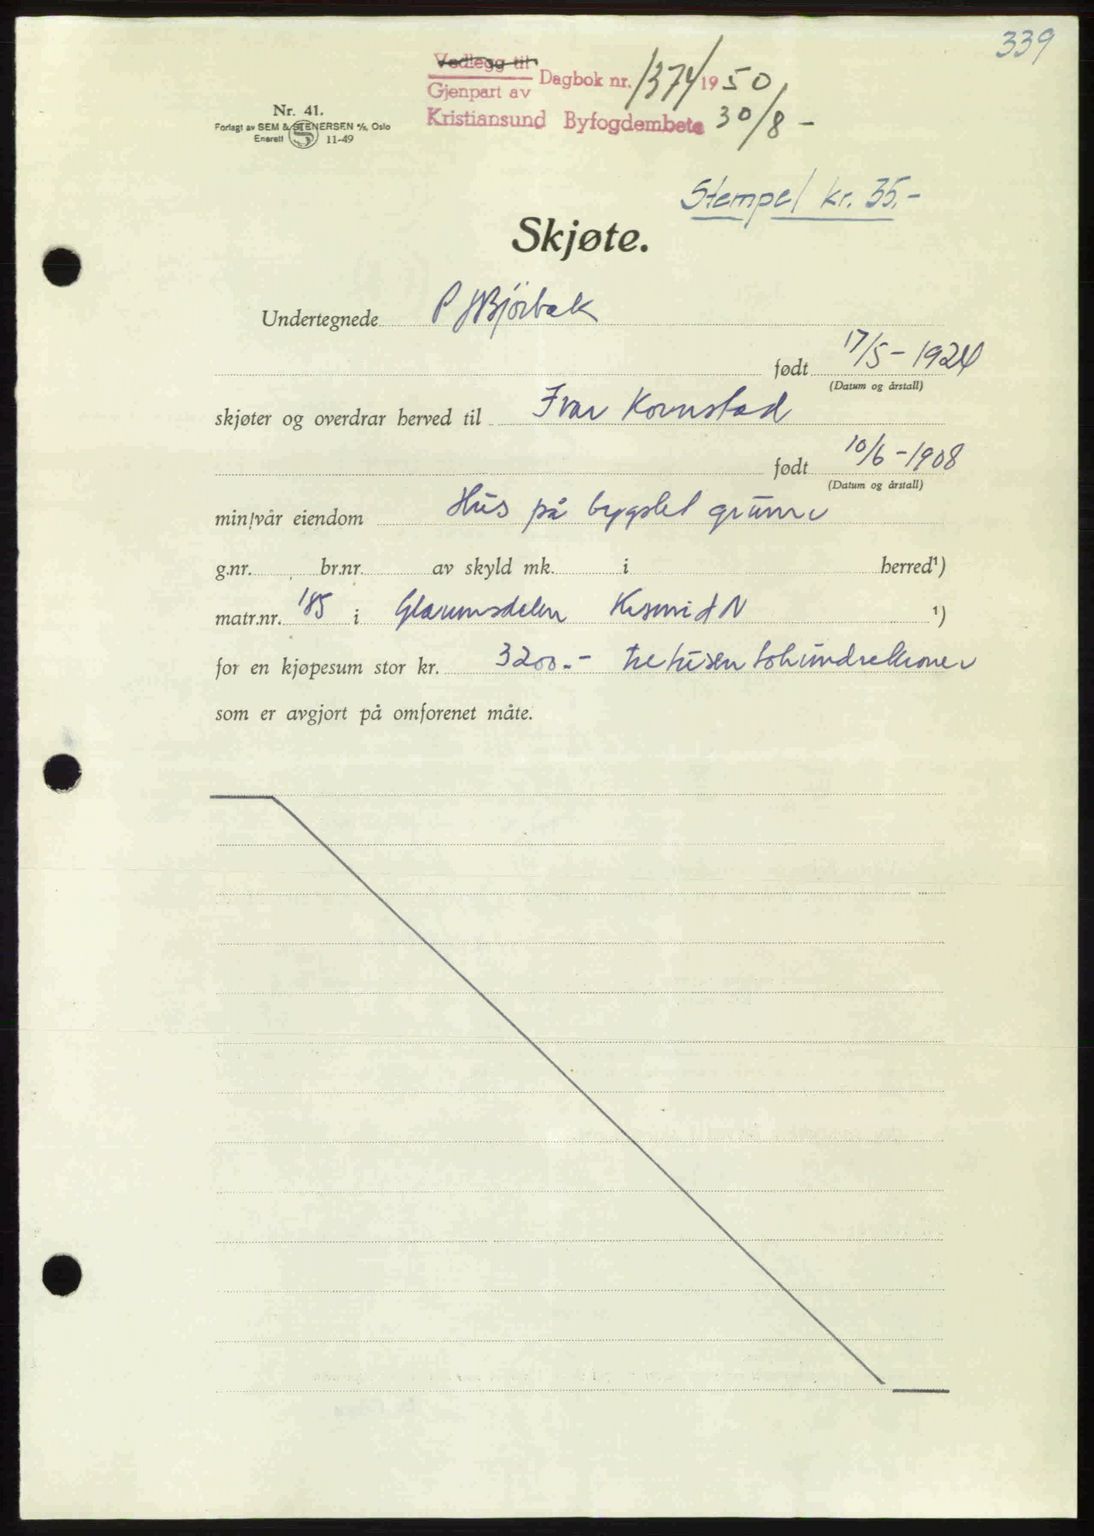 339
Vedlegg til
Gjenpart av Dagbok nr. 1374 1950
Kristiansund Byfogdembete 30/8-
Nr. 41.
Forlagt av SEM & STENERSEN A/S, Oslo
Enerett 11-49
Stempel kr. 35.-
Skjøte.
Undertegnede P J Bjørbak
født 17/5-1924
(Datum og årstall)
skjøter og overdrar herved til Ivar Kornstad
født 10/6-1908
(Datum og årstall)
min/vår eiendom Hus på bygslet grunn
g.nr. br.nr. av skyld mk. i herred¹)
matr.nr. 185 i N ¹)
for en kjøpesum stor kr. 3200.- tretusentohundrekroner
som er avgjort på omforenet måte.